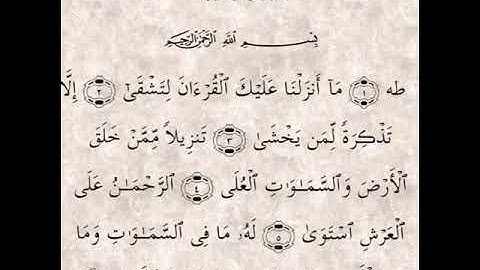 بِسْمِ ٱللَّهِ ٱلرَّحْمَٰنِ ٱلرَّحِيمِ
طه ١ مَآ أَنزَلْنَا عَلَيْكَ ٱلْقُرْءَانَ لِتَشْقَىٰٓ ٢ إِلَّا
تَذْكِرَةً لِّمَن يَخْشَىٰ ٣ تَنزِيلاً مِّمَّنْ خَلَقَ
ٱلْأَرْضَ وَٱلسَّمَـٰوَٰتِ ٱلْعُلَى ٤ ٱلرَّحْمَـٰنُ عَلَى
ٱلْعَرْشِ ٱسْتَوَىٰ ٥ لَهُۥ مَا فِى ٱلسَّمَـٰوَٰتِ وَمَا